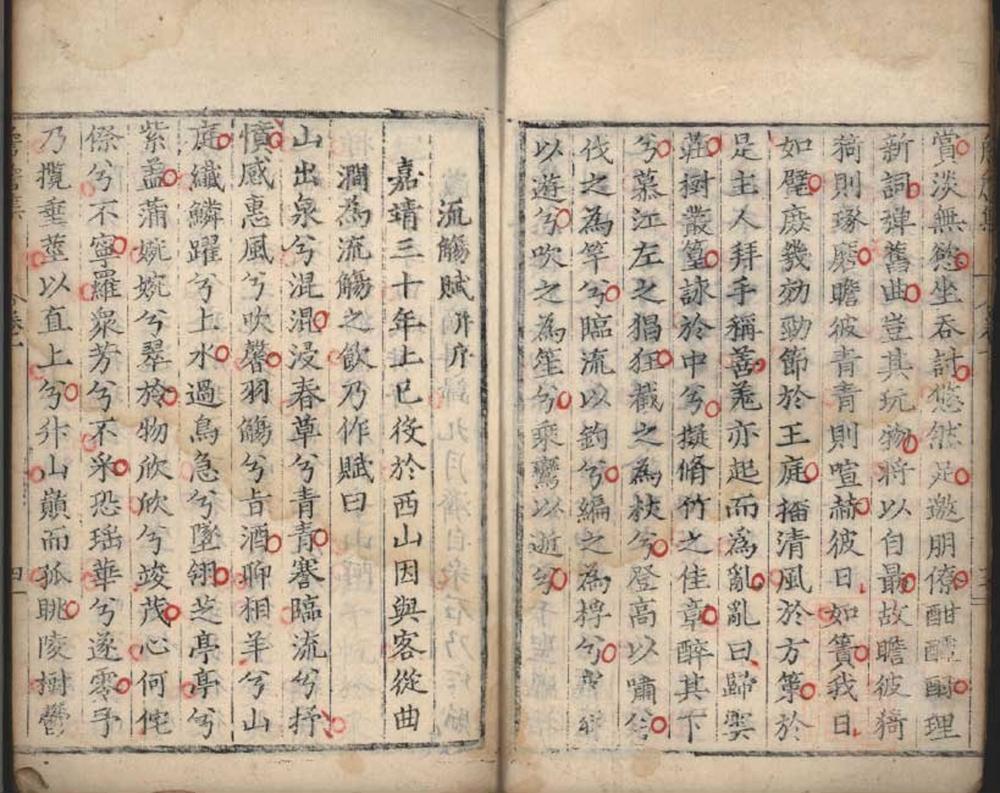 賞淡無慾坐吞詩悠然足邀朋僚酣醲酬理
新詞彈舊曲豈其玩物將以自最故瞻彼猗
猗則琢磨瞻彼青青則喧赫彼日如簀我日
如璧庶幾効勁節於王庭播清風於方策於
是主人拜手稱善羌亦起而為亂亂曰歸與
莊樹叢篁詠於中兮擬脩竹之佳章醉其下
兮慕江左之猖狂截之為杖兮登高以嘯
伐之為竿兮臨流以釣兮編之為桴兮
以遊兮吹之為笙兮乘鸞以逝兮
流觴賦并序
嘉靖三十年上巳役於西山因與客從曲
澗為流觴之飲乃作賦曰
山出泉兮混混浸春草兮青青蹇臨流兮抒
憤感惠風兮吹馨羽觴兮旨酒聊相羊兮山
庭纖鱗躍兮上水過鳥急兮墜翎芝亭亭兮
紫蓋蒲婉婉兮翠於物欣欣兮竣茂心何侘
傺兮不寧羅衆芳兮不采恐瑶華兮遂零予
乃攬垂莖以直上兮升山巔而孤眺陵樹鬱